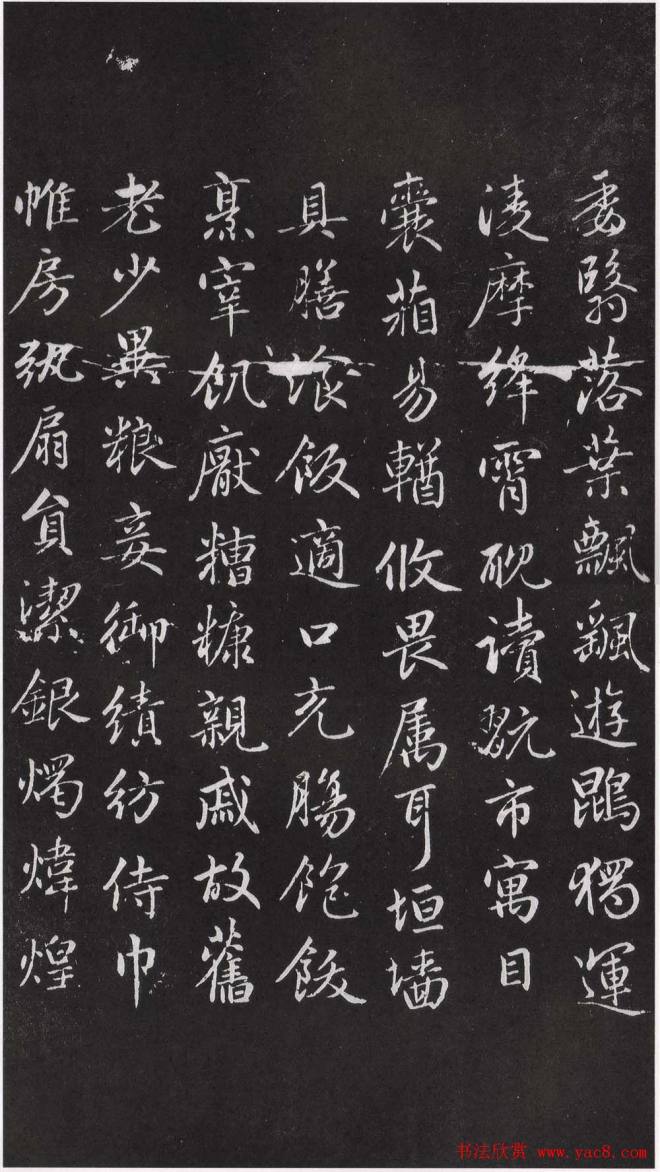 委翳落葉飄飖遊鵾獨運
淩摩絳霄耽讀翫市寓目
囊葙易輶攸畏属耳垣墻
具膳飡飯適口充腸飽飫
烹宰飢厭糟糠親戚故舊
老少異粮妾御績紡侍巾
帷房紈扇員潔銀燭煒煌
书法欣赏 www.yac8.com